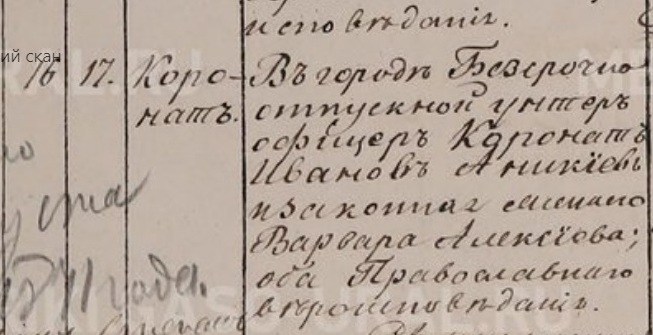 исповѣданія.
ий скан
16 17. Коро-
натъ.
Въ городѣ Безсрочно
отпускной унтеръ
офицеръ Коронатъ
Ивановъ Аникіевъ
и законная жена его
Варвара Алексѣева;
оба Православнаго
вѣроисповѣданія.
года.